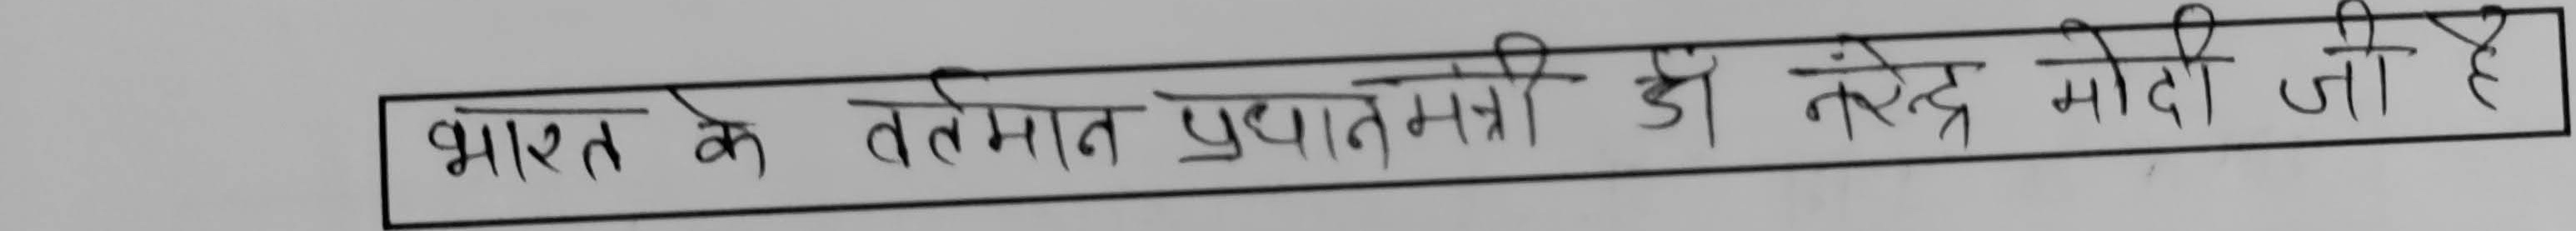 भारत के वर्तमान प्रधानमंत्री डॉ नरेन्द्र मोदी जी है